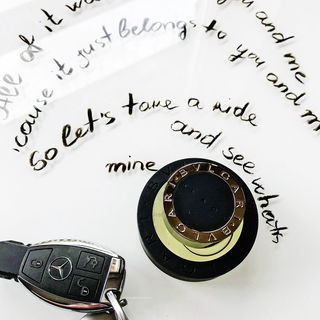 All of it wa
you and me
'cause it just Belongs to you and m
So let's take a ride
and see what's
mine
BVLGARI BVLGARI